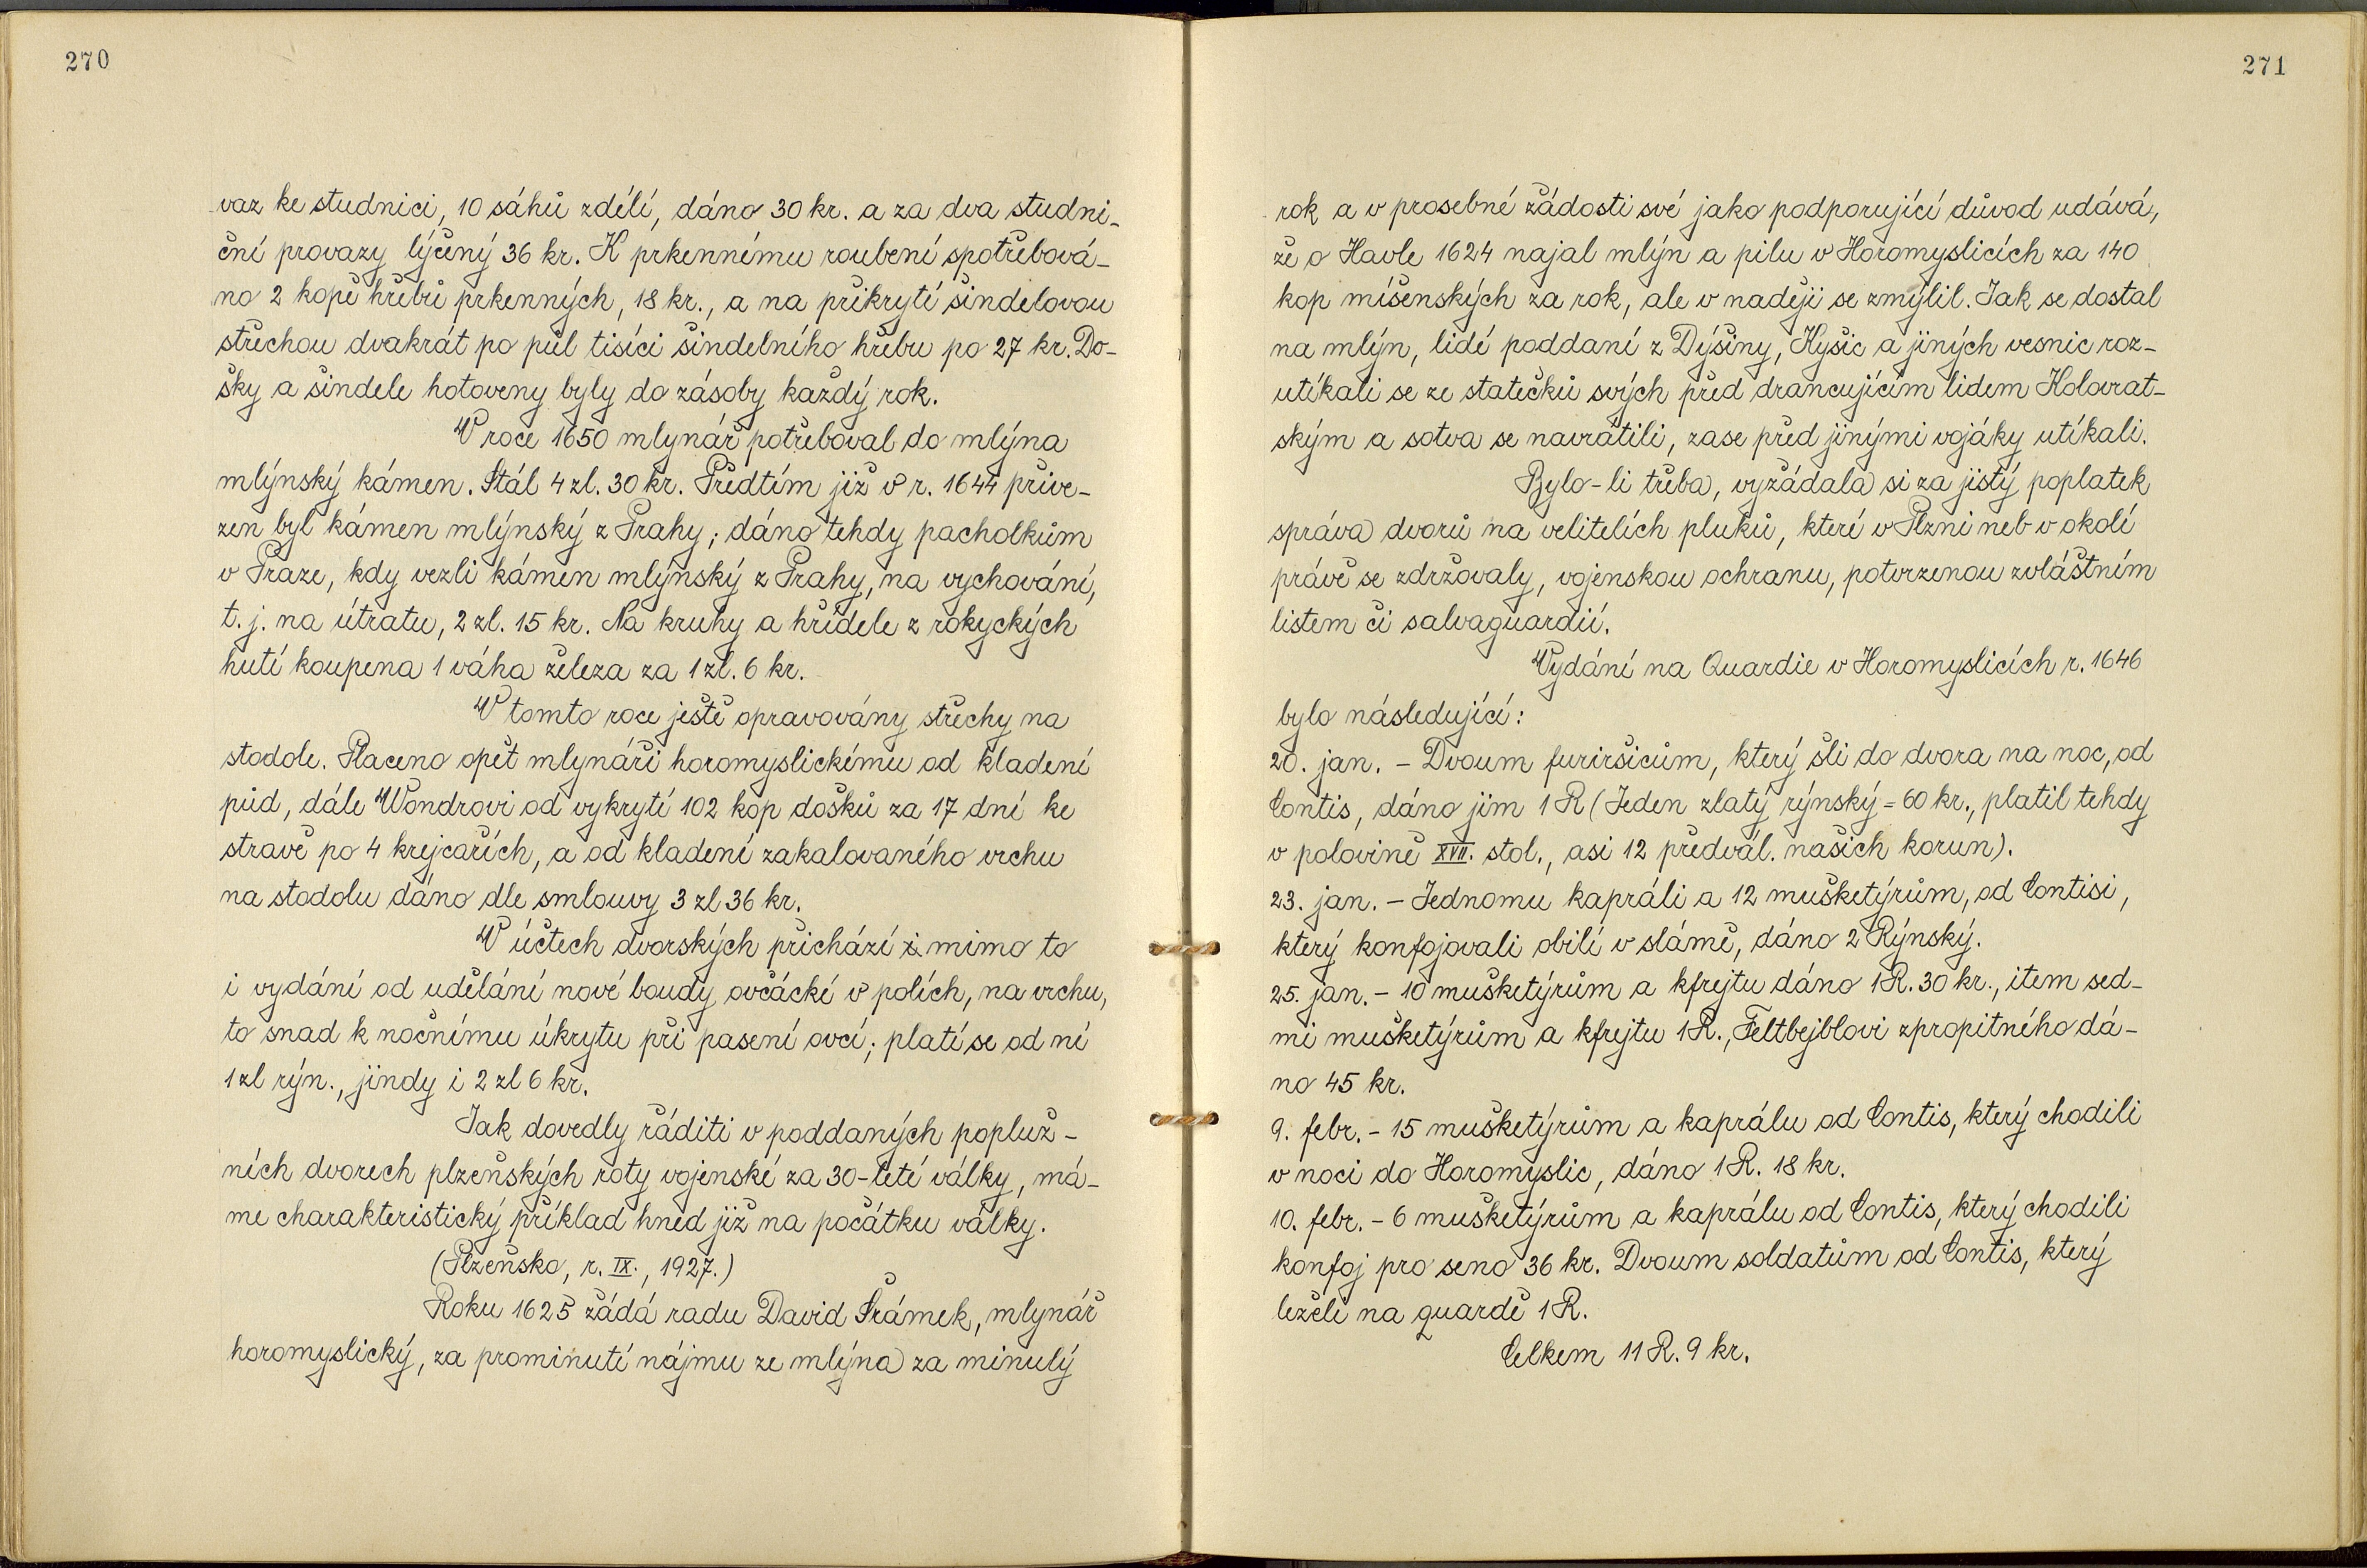 270
vaz ke studnici, 10 sáhů zdélí, dáno 30 kr. a za dva studni-
ční provazy lýčený 36 kr. K prkennému roubení spotřebová-
no 2 kopě hřebů prkenných, 18 kr., a na přikrytí šindelovou
střechou dvakrát po půl tisíci šindelního hřebu po 27 kr. Do-
šky a šindele hotoveny byly do zásoby každý rok.
V roce 1650 mlynář potřeboval do mlýna
mlýnský kámen. Stál 4 zl. 30 kr. Předtím již v r. 1644 přive-
zen byl kámen mlýnský z Prahy; dáno tehdy pacholkům
v Praze, kdy vezli kámen mlýnský z Prahy, na vychování,
t. j. na útratu, 2 zl. 15 kr. Na kruhy a hřídele z rokyckých
hutí koupena 1 váha železa za 1 zl. 6 kr.
V tomto roce ještě opravovány střechy na
stodole. Placeno opět mlynáři horomyslickému od kladení
půd, dále Wondrovi od vykrytí 102 kop došků za 17 dní ke
stravě po 4 krejcařích, a od kladení zakalovaného vrchu
na stodolu dáno dle smlouvy 3 zl 36 kr.
V účtech dvorských přichází i mimo to
i vydání od udělání nové boudy ovčácké v polích, na vrchu,
to snad k nočnímu úkrytu při pasení ovcí; platí se od ní
1 zl rýn., jindy i 2 zl 6 kr.
Jak dovedly řáditi v poddaných popluž-
ních dvorech plzeňských roty vojenské za 30-leté války, má-
me charakteristický příklad hned již na počátku války.
(Plzeňsko, r. IX., 1927.)
Roku 1625 žádá radu David Šrámek, mlynář
horomyslický, za prominutí nájmu ze mlýna za minulý
271
rok a v prosebné žádosti své jako podporující důvod udává,
že o Havle 1624 najal mlýn a pilu v Horomyslicích za 140
kop míšenských za rok, ale v naději se zmýlil. Jak se dostal
na mlýn, lidé poddaní z Dýšiny, Kyšic a jiných vesnic roz-
utíkali se ze statečků svých před drancujícím lidem Kolovrat-
ským a sotva se navrátili, zase před jinými vojáky utíkali.
Bylo-li třeba, vyžádala si za jistý poplatek
správa dvorů na velitelích pluků, které v Plzni neb v okolí
právě se zdržovaly, vojenskou ochranu, potvrzenou zvláštním
listem či salvaguardií.
Vydání na Quardie v Horomyslicích r. 1646
bylo následující:
20. jan. – Dvoum furiršicům, který šli do dvora na noc, od
Contis, dáno jim 1 R (Jeden zlatý rýnský = 60 kr., platil tehdy
v polovině XVII. stol., asi 12 předvál. našich korun).
23. jan. – Jednomu kapráli a 12 mušketýrům, od Contisi,
který konfojovali obilí v slámě, dáno 2 Rýnský.
25. jan. – 10 mušketýrům a kfrejtu dáno 1 R. 30 kr., item sed-
mi mušketýrům a kfrejtu 1 R., Feltbejblovi zpropitného dá-
no 45 kr.
9. febr. – 15 mušketýrům a kaprálu od Contis, který chodili
v noci do Horomyslic, dáno 1 R. 18 kr.
10. febr. – 6 mušketýrům a kaprálu od Contis, který chodili
konfoj pro seno 36 kr. Dvoum soldatům od Contis, který
leželi na quardě 1 R.
Celkem 11 R. 9 kr.